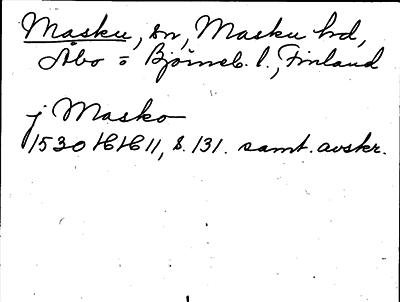 Masku, sn, Masku hd,
Åbo = Björneb. l., Finland
j Masko
1530 16/6 11, s. 131. samt. avskr.